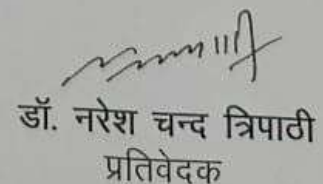 डॉ. नरेश चन्द त्रिपाठी
प्रतिवेदक